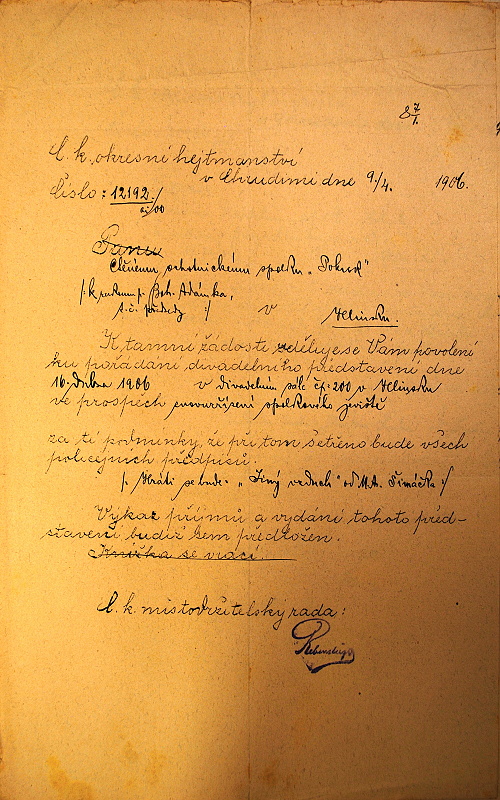 8 7/1.
C. k. okresní hejtmanství
v Chrudimi dne 9./4. 1906.
Číslo: 12192./
Panu
Ctěnému ochotnickému spolku „Pokrok"
/: k rukoum p. Boh. Adámka,
t. č. předsedy :/ v Hlinsku.
K tamní žádosti uděluje se Vám povolení
ku pořádání divadelního představení dne
16. dubna 1906 v divadelním sále čp: 200 v Hlinsku
ve prospěch znovuzřízení spolkového jeviště
za té podmínky, že při tom šetřeno bude všech
policejních předpisů.
/: Hráti se bude: „Jiný vzduch" od M. A. Šimáčka :/
Výkaz příjmů a vydání tohoto před-
stavení budiž sem předložen.
Knížka se vrací.
C. k. místodržitelský rada: